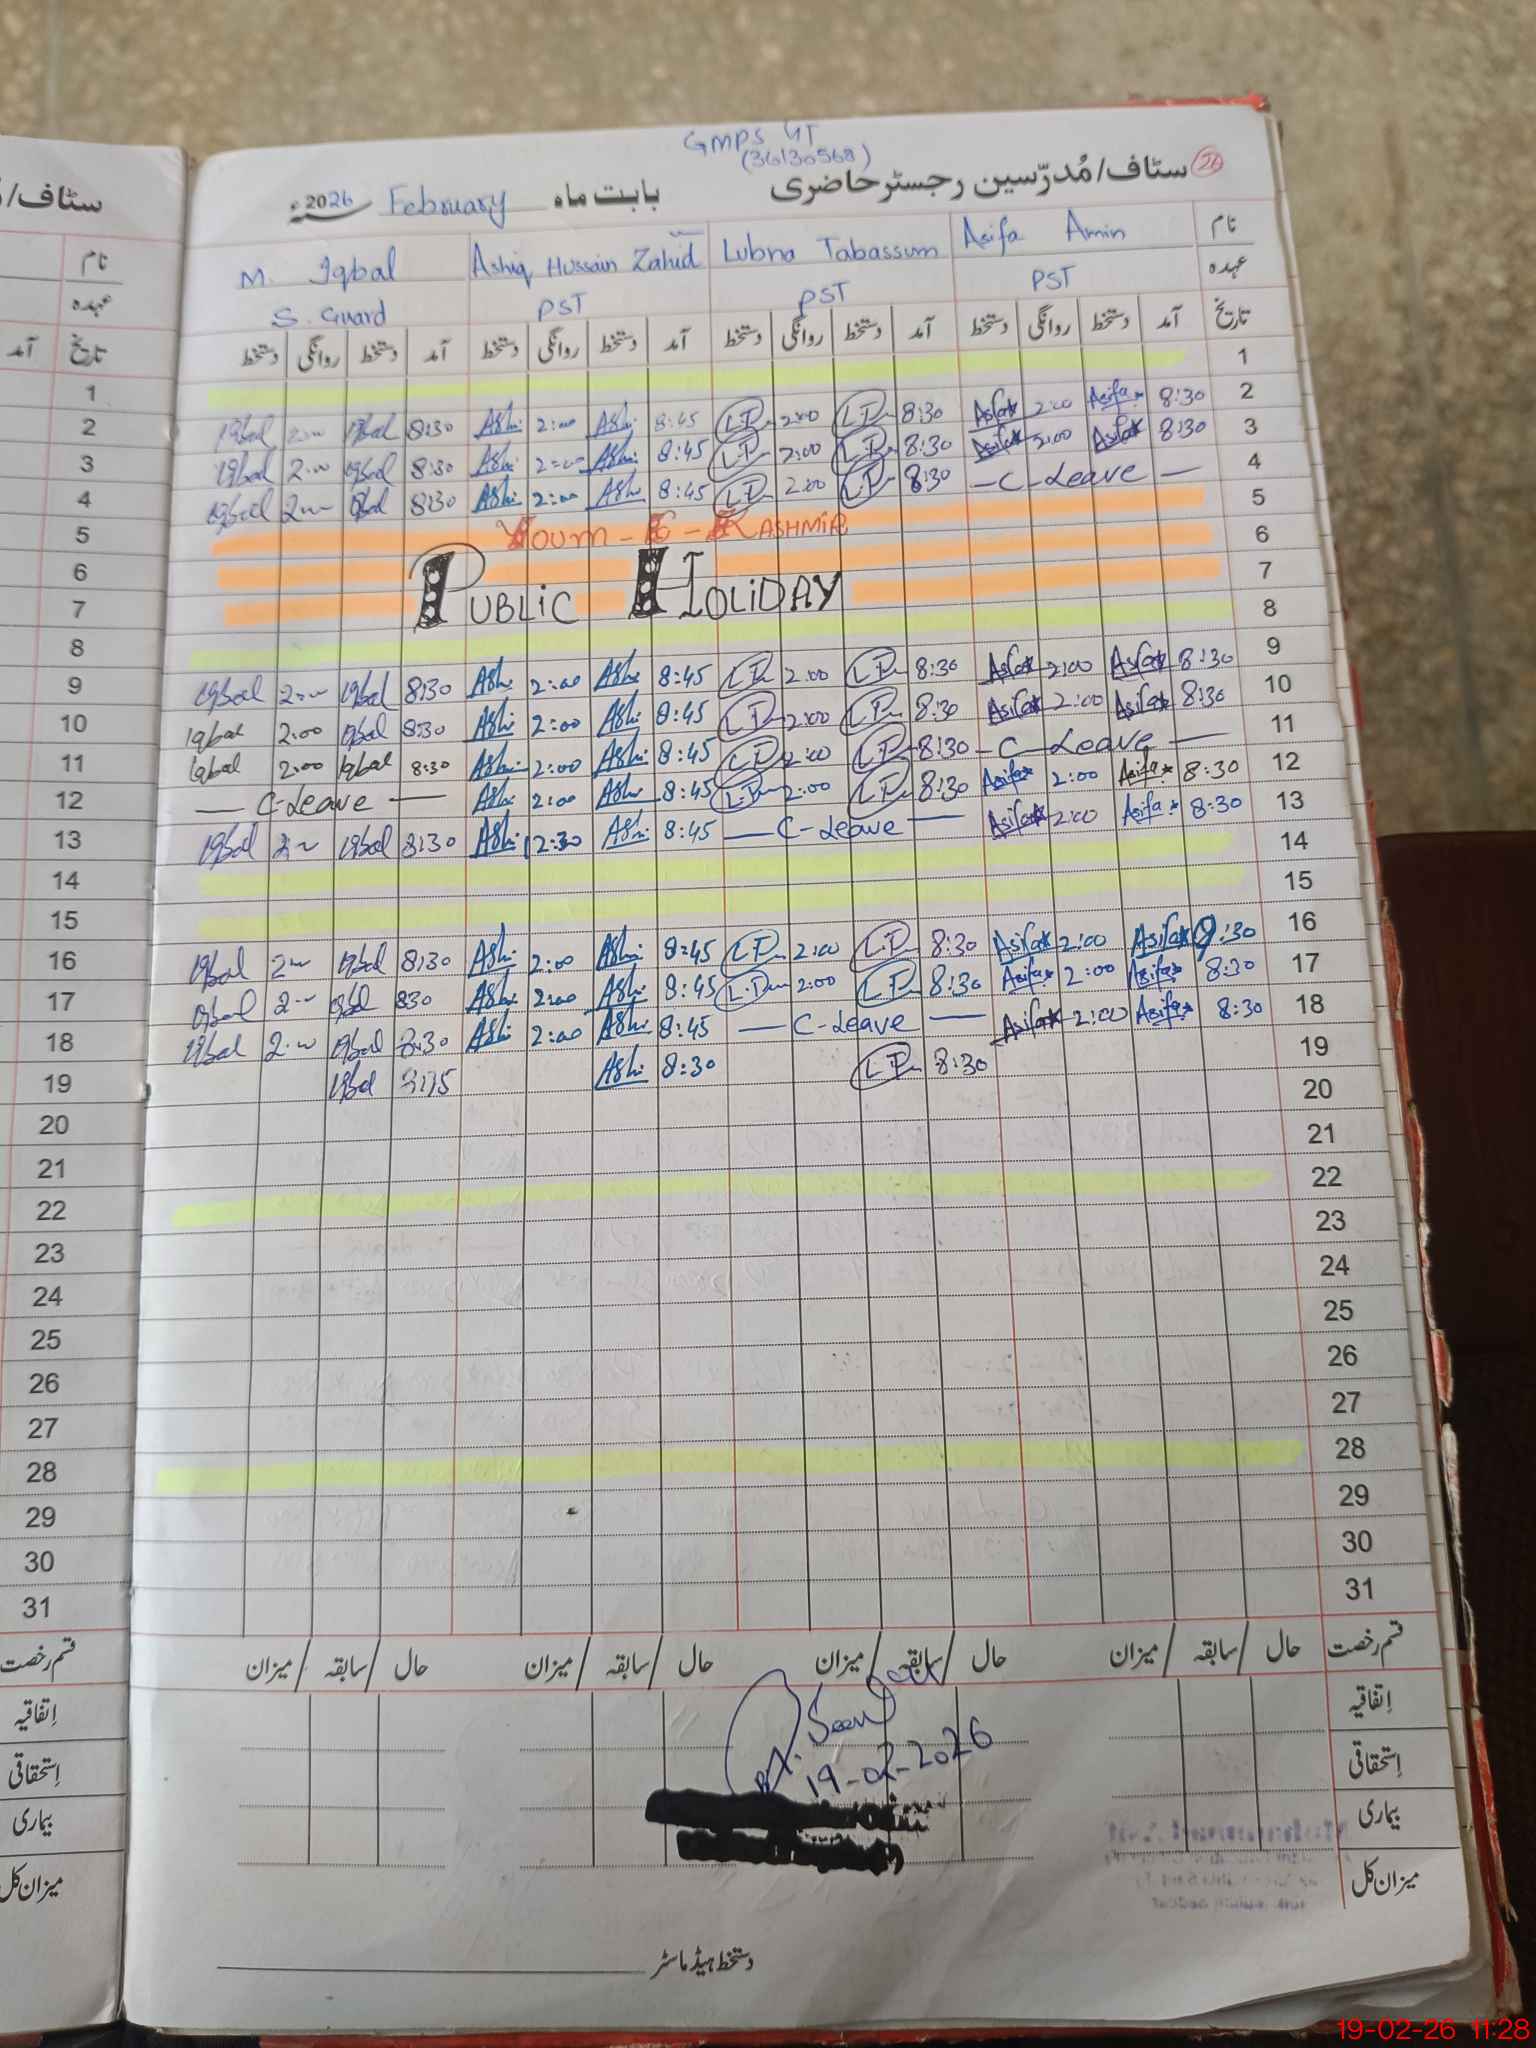 GMPS GT
(36130568)
سٹاف/مُدرّسین رجسٹر حاضری بابت ماہ February سنہ 2026ء
سٹاف/
نام Asifa Amin Lubna Tabassum Ashiq Hussain Zahid M. Iqbal نام
عہدہ PST PST PST S. Guard عہدہ
تاریخ آمد دستخط روانگی دستخط آمد دستخط روانگی دستخط آمد دستخط روانگی دستخط آمد دستخط روانگی دستخط تاریخ آمد
1 1
2 Iqbal Iqbal 8:30 Ashi 2:00 Ashi 8:45 2:00 8:30 Asifa 2:00 Asifa 8:30 2
3 Iqbal 2:00 Iqbal 8:30 Ashi 2:00 Ashi 8:45 2:00 8:30 Asifa 2:00 Asifa 8:30 3
4 Iqbal Iqbal 8:30 Ashi 2:00 Ashi 8:45 2:00 8:30 — C-Leave — 4
5 Youm-E-Kashmir 5
6 6
7 Public Holiday 7
8 8
9 Iqbal Iqbal 8:30 Ashi 2:00 Ashi 8:45 2:00 8:30 Asifa 2:00 Asifa 8:30 9
10 Iqbal 2:00 Iqbal 8:30 Ashi 2:00 Ashi 8:45 2:00 8:30 Asifa 2:00 Asifa 8:30 10
11 Iqbal 2:00 Iqbal 8:30 Ashi 2:00 Ashi 8:45 2:00 8:30 — C-Leave — 11
12 — C-Leave — Ashi 2:00 Ashi 8:45 2:00 8:30 Asifa 2:00 Asifa 8:30 12
13 Iqbal Iqbal 8:30 Ashi 12:30 Ashi 8:45 — C-Leave — Asifa 2:00 Asifa 8:30 13
14 14
15 15
16 Iqbal Iqbal 8:30 Ashi 2:00 Ashi 8:45 2:00 8:30 Asifa 2:00 Asifa :30 16
17 Iqbal Iqbal 830 Ashi 2:00 Ashi 8:45 2:00 8:30 Asifa 2:00 Asifa 8:30 17
18 Iqbal Iqbal 8:30 Ashi 2:00 Ashi 8:45 — C-Leave — Asifa 2:00 Asifa 8:30 18
19 Iqbal Ashi 8:30 8:30 19
20 20
21 21
22 22
23 23
24 24
25 25
26 26
27 27
28 28
29 29
30 30
31 31
قسم رخصت حال /سابقہ /میزان حال /سابقہ /میزان حال /سابقہ /میزان حال /سابقہ /میزان قسم رخصت
اِتفاقیہ اِتفاقیہ
Seen
اِستحقاقی 19-02-2026 اِستحقاقی
بیماری بیماری
میزان کل میزان کل
دستخط ہیڈ ماسٹر
19-02-26 11:28